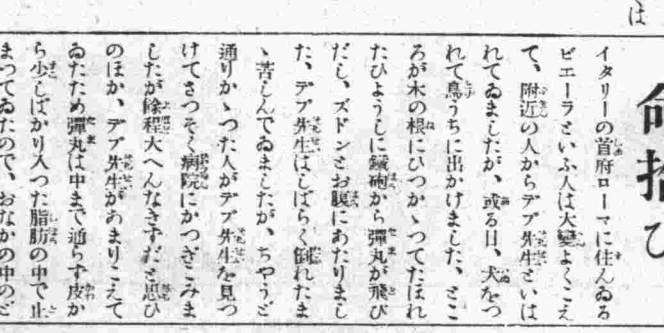 は
命拾ひ
イタリーの首府ローマに住んゐる
ピエーラといふ人は大變よくこえ
て、附近の人からデブ先生といは
れてゐましたが、或る日、犬をつ
れて鳥うちに出かけました、とこ
ろが木の根にひつかゝつてたほれ
たひようしに鐵砲から彈丸が飛び
だし、ズドンとお腹にあたりまし
た、デブ先生はしばらく倒れたま
ゝ苦しんでゐましたが、ちやうど
通りかゝつた人がデブ先生を見つ
けてさつそく病院にかつぎこみま
したが餘程大へんなきずだと思ひ
のほか、デブ先生があまりこえて
ゐたため彈丸は中まで通らず皮か
ら少しばかり入つた脂肪の中で止
まつてゐたので、おなかの中のど